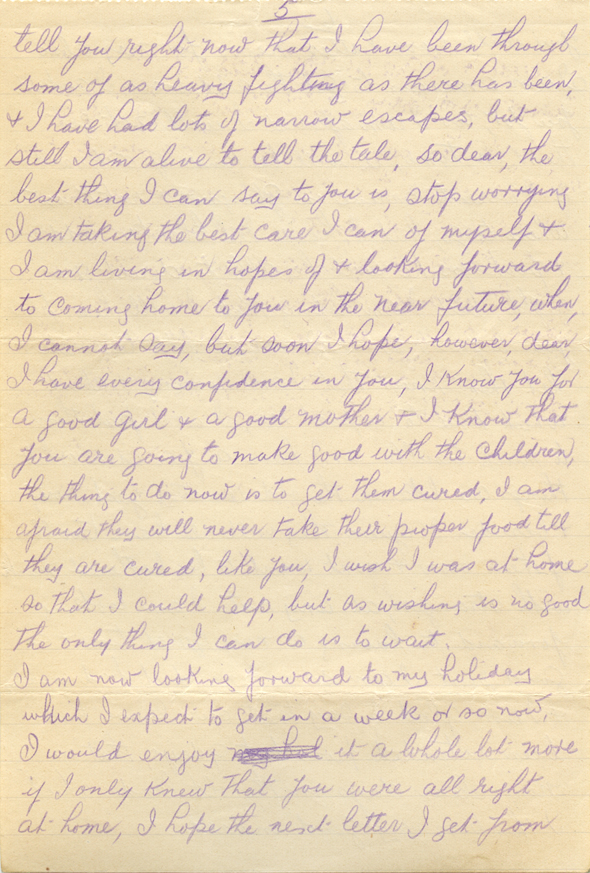 5
tell you right now that I have been through
some of as heavy fighting as there has been,
& I have had lots of narrow escapes, but
still I am alive to tell the tale, so dear, the
best thing I can say to you is, stop worrying
I am taking the best care I can of myself &
I am living in hopes of & looking forward
to coming home to you in the near future, when,
I cannot say, but soon I hope, however, dear,
I have every confidence in you, I know you for
a good girl & a good mother & I know that
you are going to make good with the children,
the thing to do now is to get them cured, I am
afraid they will never take their proper food till
they are cured, like you, I wish I was at home
so that I could help, but as wishing is no good
the only thing I can do is to wait.
I am now looking forward to my holiday
which I expect to get in a week or so now,
I would enjoy it a whole lot more
if I only knew that you were all right
at home, I hope the next letter I get from